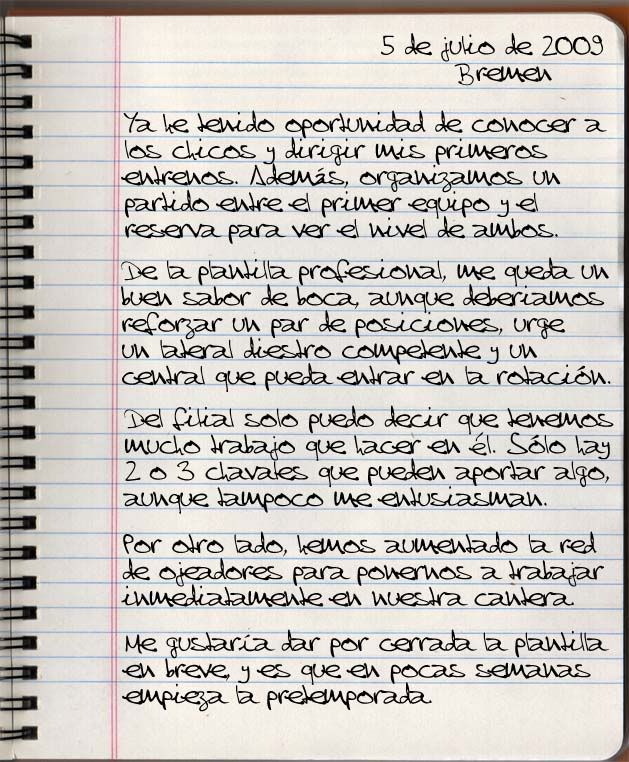 5 de julio de 2009
Bremen
Ya he tenido oportunidad de conocer a
los chicos y dirigir mis primeros
entrenos. Además, organizamos un
partido entre el primer equipo y el
reserva para ver el nivel de ambos.
De la plantilla profesional, me queda un
buen sabor de boca, aunque deberiamos
reforzar un par de posiciones, urge
un lateral diestro competente y un
central que pueda entrar en la rotación.
Del filial solo puedo decir que tenemos
mucho trabajo que hacer en él. Sólo hay
2 o 3 chavales que pueden aportar algo,
aunque tampoco me entusiasman.
Por otro lado, hemos aumentado la red
de ojeadores para ponernos a trabajar
inmediatamente en nuestra cantera.
Me gustaría dar por cerrada la plantilla
en breve, y es que en pocas semanas
empieza la pretemporada.